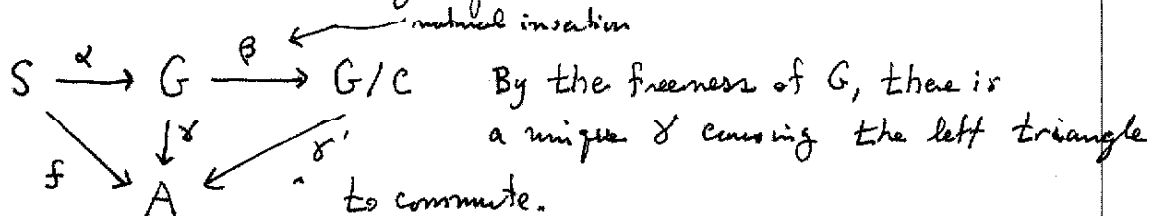 natural insertion
S α G β G/C By the freeness of G, there is
f γ γ' a unique γ causing the left triangle
A to commute.